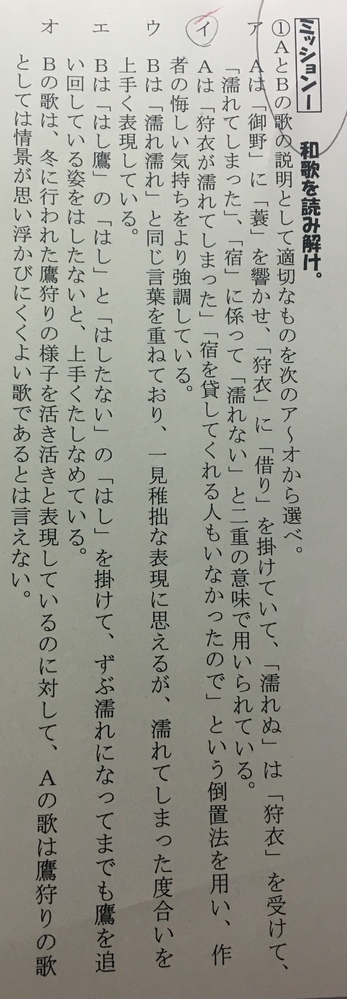 ミッションⅠ　和歌を読み解け。
①ＡとＢの歌の説明として適切なものを次のア～オから選べ。
ア　Ａは「御野」に「蓑」を響かせ、「狩衣」に「借り」を掛けていて、「濡れぬ」は「狩衣」を受けて、
「濡れてしまった」、「宿」に係って「濡れない」と二重の意味で用いられている。
イ　Ａは「狩衣が濡れてしまった」「宿を貸してくれる人もいなかったので」という倒置法を用い、作
者の悔しい気持ちをより強調している。
ウ　Ｂは「濡れ濡れ」と同じ言葉を重ねており、一見稚拙な表現に思えるが、濡れてしまった度合いを
上手く表現している。
エ　Ｂは「はし鷹」の「はし」と「はしたない」の「はし」を掛けて、ずぶ濡れになってまでも鷹を追
い回している姿をはしたないと、上手くたしなめている。
オ　Ｂの歌は、冬に行われた鷹狩りの様子を活き活きと表現しているのに対して、Ａの歌は鷹狩りの歌
としては情景が思い浮かびにくくよい歌であるとは言えない。